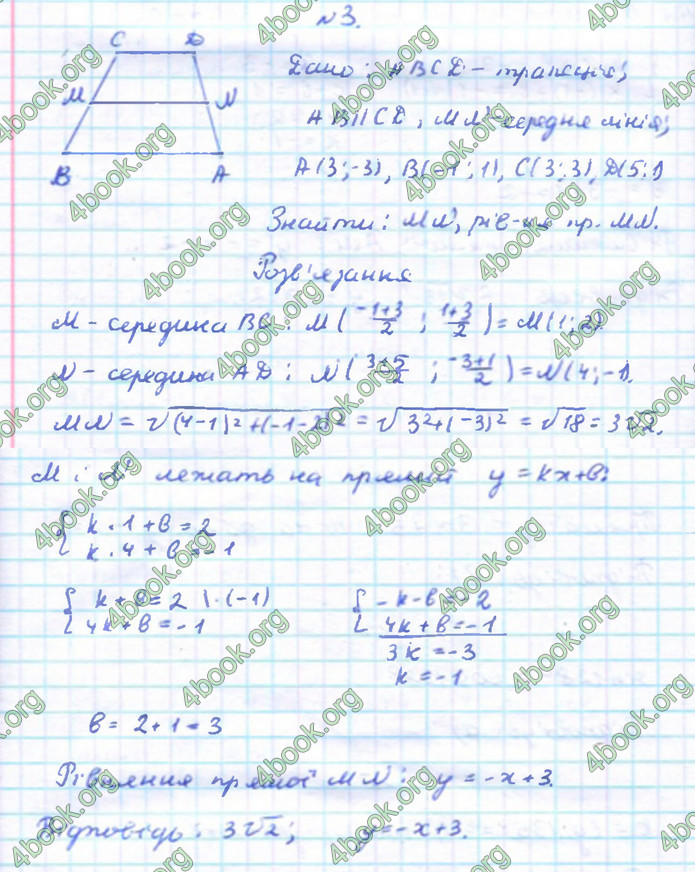 №3.
C D
M N
B A
Дано: ABCD – трапеція;
AB || CD, MN – середня лінія;
A(3;-3), B(-1;1), C(3;3), D(5;1)
Знайти: MN, рів-ня пр. MN.
Розв'язання
M – середина BC: M(-1+3/2 ; 1+3/2) = M(1;2).
N – середина AD: N(3+5/2 ; -3+1/2) = N(4;-1).
MN = √(4-1)²+(-1-2)² = √3²+(-3)² = √18 = 3√2.
M і N лежать на прямій y = kx+b:
{ k·1+b=2
k·4+b=-1
{ k+b=2 |·(-1)
4k+b=-1
{ -k-b=-2
4k+b=-1
3k=-3
k=-1
b = 2+1=3
Рівняння прямої MN: y = -x+3.
Відповідь: 3√2; y=-x+3.
4book.org